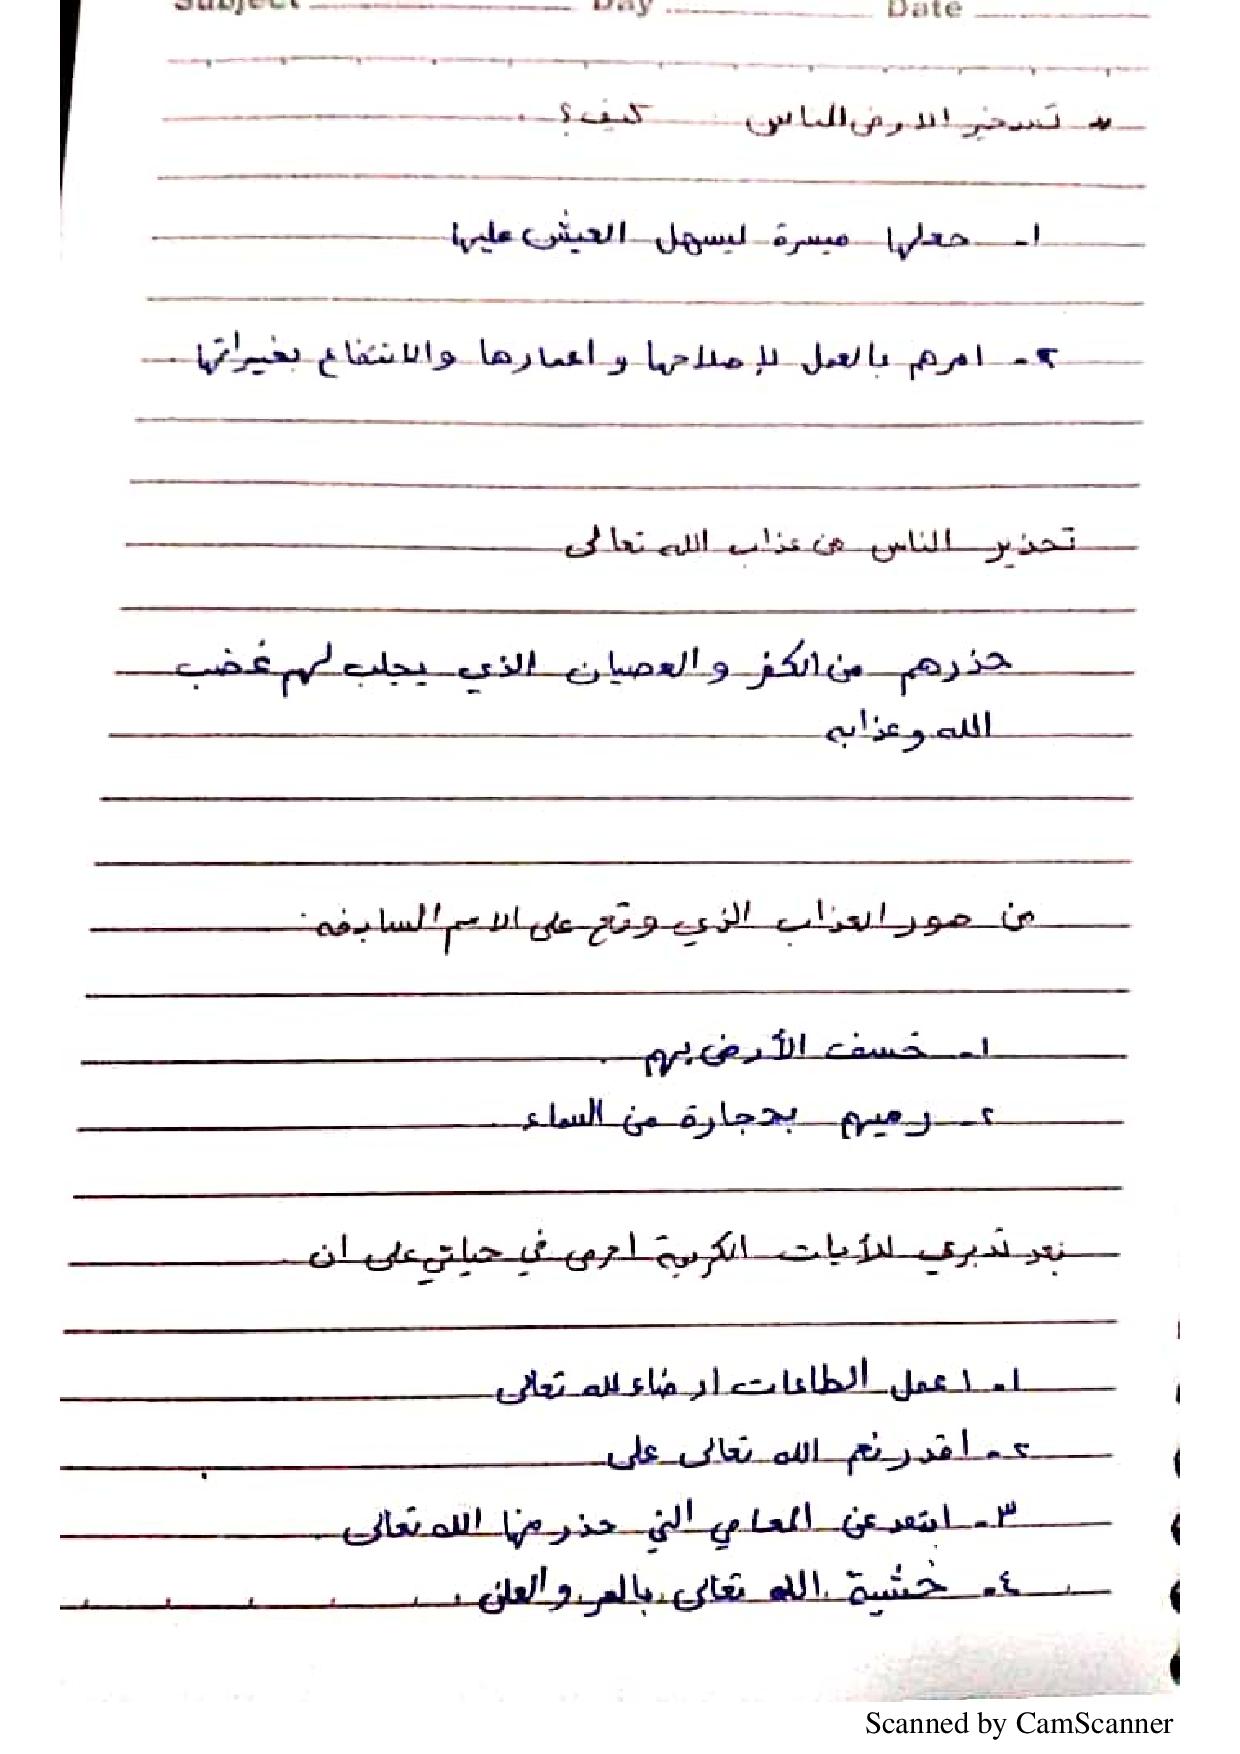 Subject Day Date
* تسخير الارض للناس كيف؟
١- جعلها ميسرة ليسهل العيش عليها
٢- امرهم بالعمل لإصلاحها واعمارها والانتفاع بخيراتها
تحذير الناس من عذاب الله تعالى
حذرهم من الكفر والعصيان الذي يجلب لهم غضب
الله وعذابه
من صور العذاب الذي وقع على الامم السابقه
١- خسف الأرض بهم
٢- رميهم بحجارة من السماء
بعد تدبري للأيات الكريمة احرص في حياتي على ان
١- اعمل الطاعات ارضاء لله تعالى
٢- اقدر نعم الله تعالى علي
٣- ابتعد عن المعاصي التي حذر منها الله تعالى
٤- خشية الله تعالى بالسر والعلن
Scanned by CamScanner